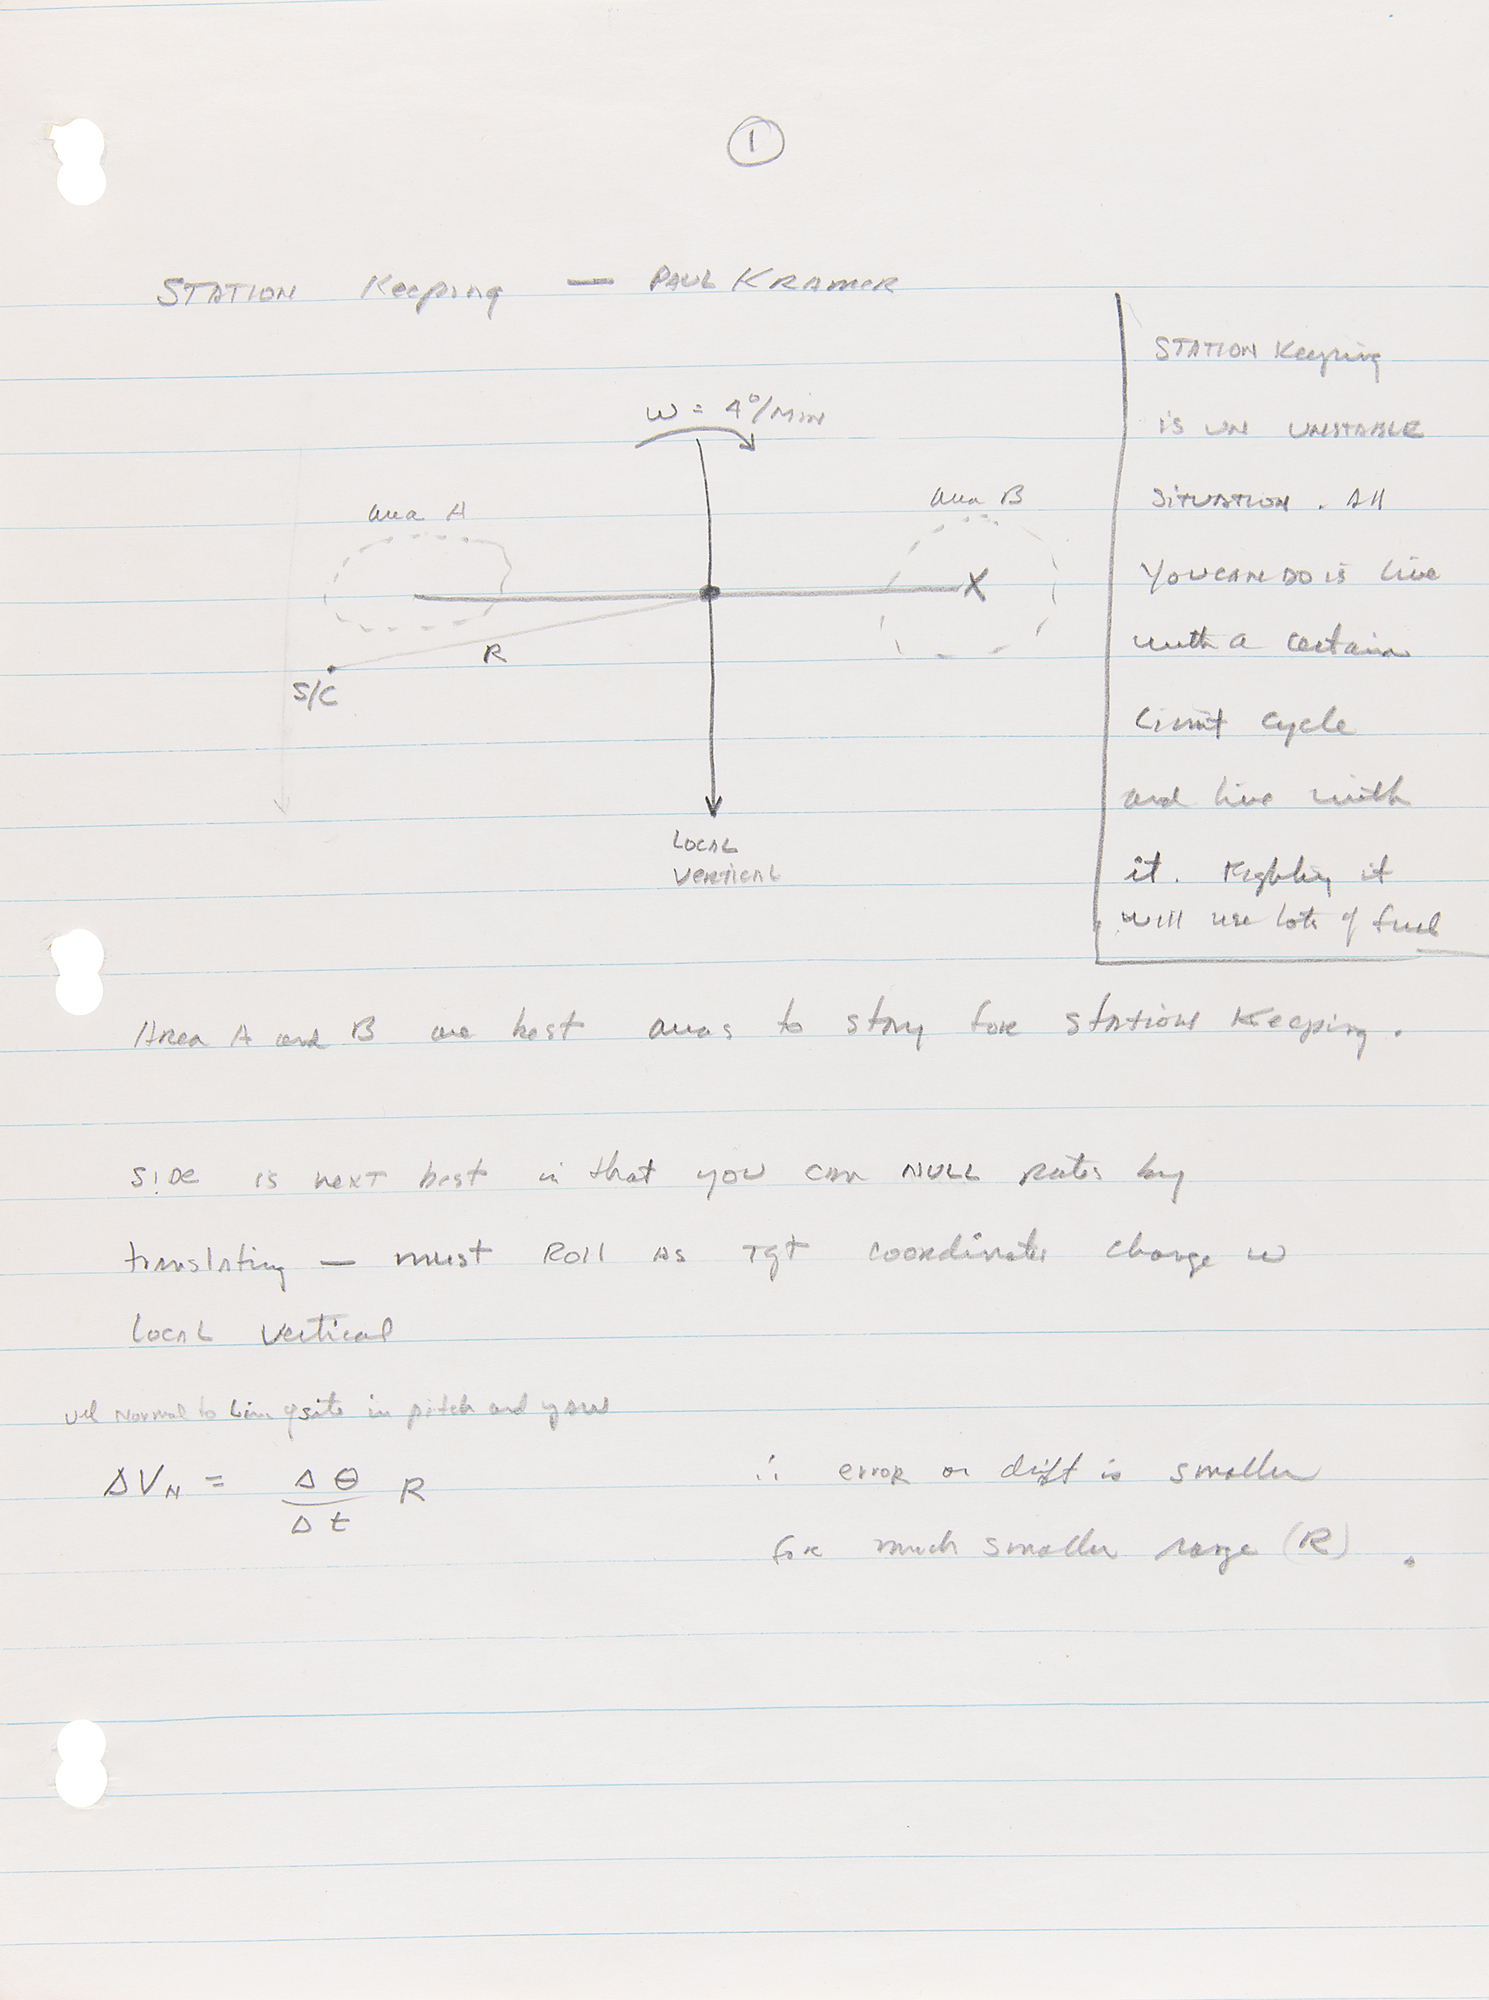 1
STATION Keeping — PAUL KRAMER
W = 4°/MIN
area A
area B
X
R
S/C
LOCAL
VERTICAL
STATION Keeping
is UN UNSTABLE
SITUATION. All
YOU CAN DO is live
with a certain
limit cycle
and live with
it. Fighting it
will use lots of fuel
Area A and B are best areas to stay for station keeping.
SIDE is next best in that you can NULL rates by
translating — must Roll as Tgt coordinates change w
LOCAL Vertical
vel Normal to line of site in pitch and yaw
ΔV_N = Δθ/Δt R
∴ error or drift is smaller
for much smaller range (R).